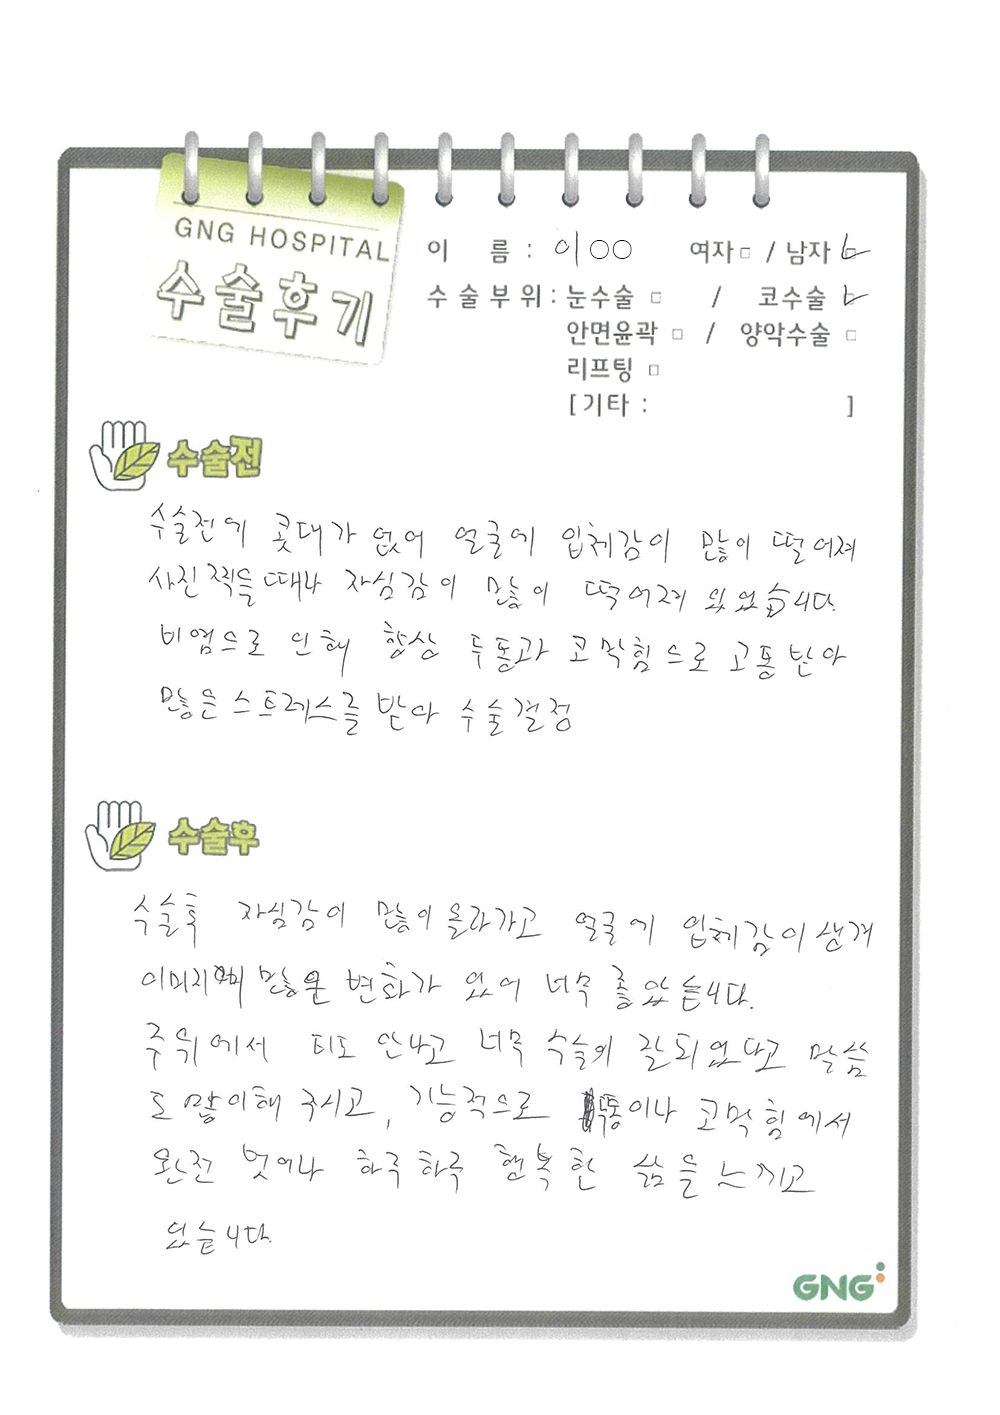 GNG HOSPITAL
수술후기
이 름 : 이○○ 여자□ / 남자☑
수술부위 : 눈수술 □ / 코수술 ☑
안면윤곽 □ / 양악수술 □
리프팅 □
[기타 : ]
수술전
수술전에 콧대가 없어 얼굴에 입체감이 많이 떨어져
사진찍을때나 자심감이 많이 떨어져 있었습니다.
비염으로 인해 항상 두통과 코막힘으로 고통받아
많은 스트레스를 받다 수술결정
수술후
수술후 자심감이 많이 올라가고 얼굴에 입체감이 생겨
이미지에 많은 변화가 있어 너무 좋았습니다.
주위에서 티도 안나고 너무 수술이 잘되었다고 말씀
도 많이해 주시고, 기능적으로 두통이나 코막힘에서
완전 벗어나 하루하루 행복한 삶을 느끼고
있습니다.
GNG